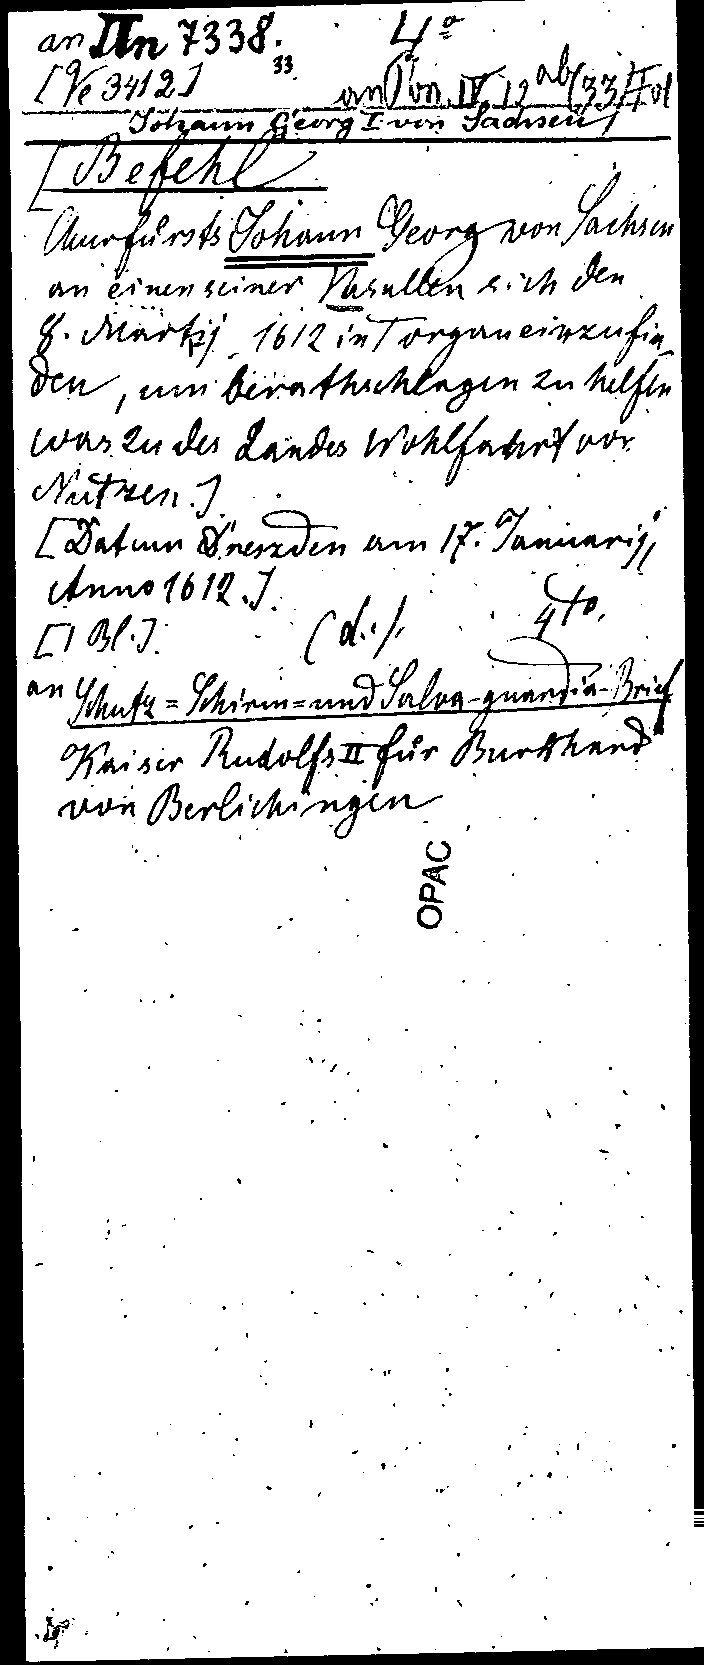 an IIn 7338. 4º
33
[Ve 3412] an Pon. IV, 12 ab (33) Fol
Johann Georg I von Sachsen
[Befehl
Churfürsts Johann Georg von Sachsen
an einen seiner Vasallen sich den
8. Martij 1612 in Torgau einzufin-
den, um berathschlagen zu helfen
was zu des Landes Wohlfahrt von
Nutzen.]
[Datum Dreszden am 17. Januarij,
Anno 1612.]
[1 Bl.] (d.). 4to.
an Schutz=Schirm=und Salva-guardia-Brief
Kaiser Rudolfs II für Burkhard
von Berlichingen
OPAC